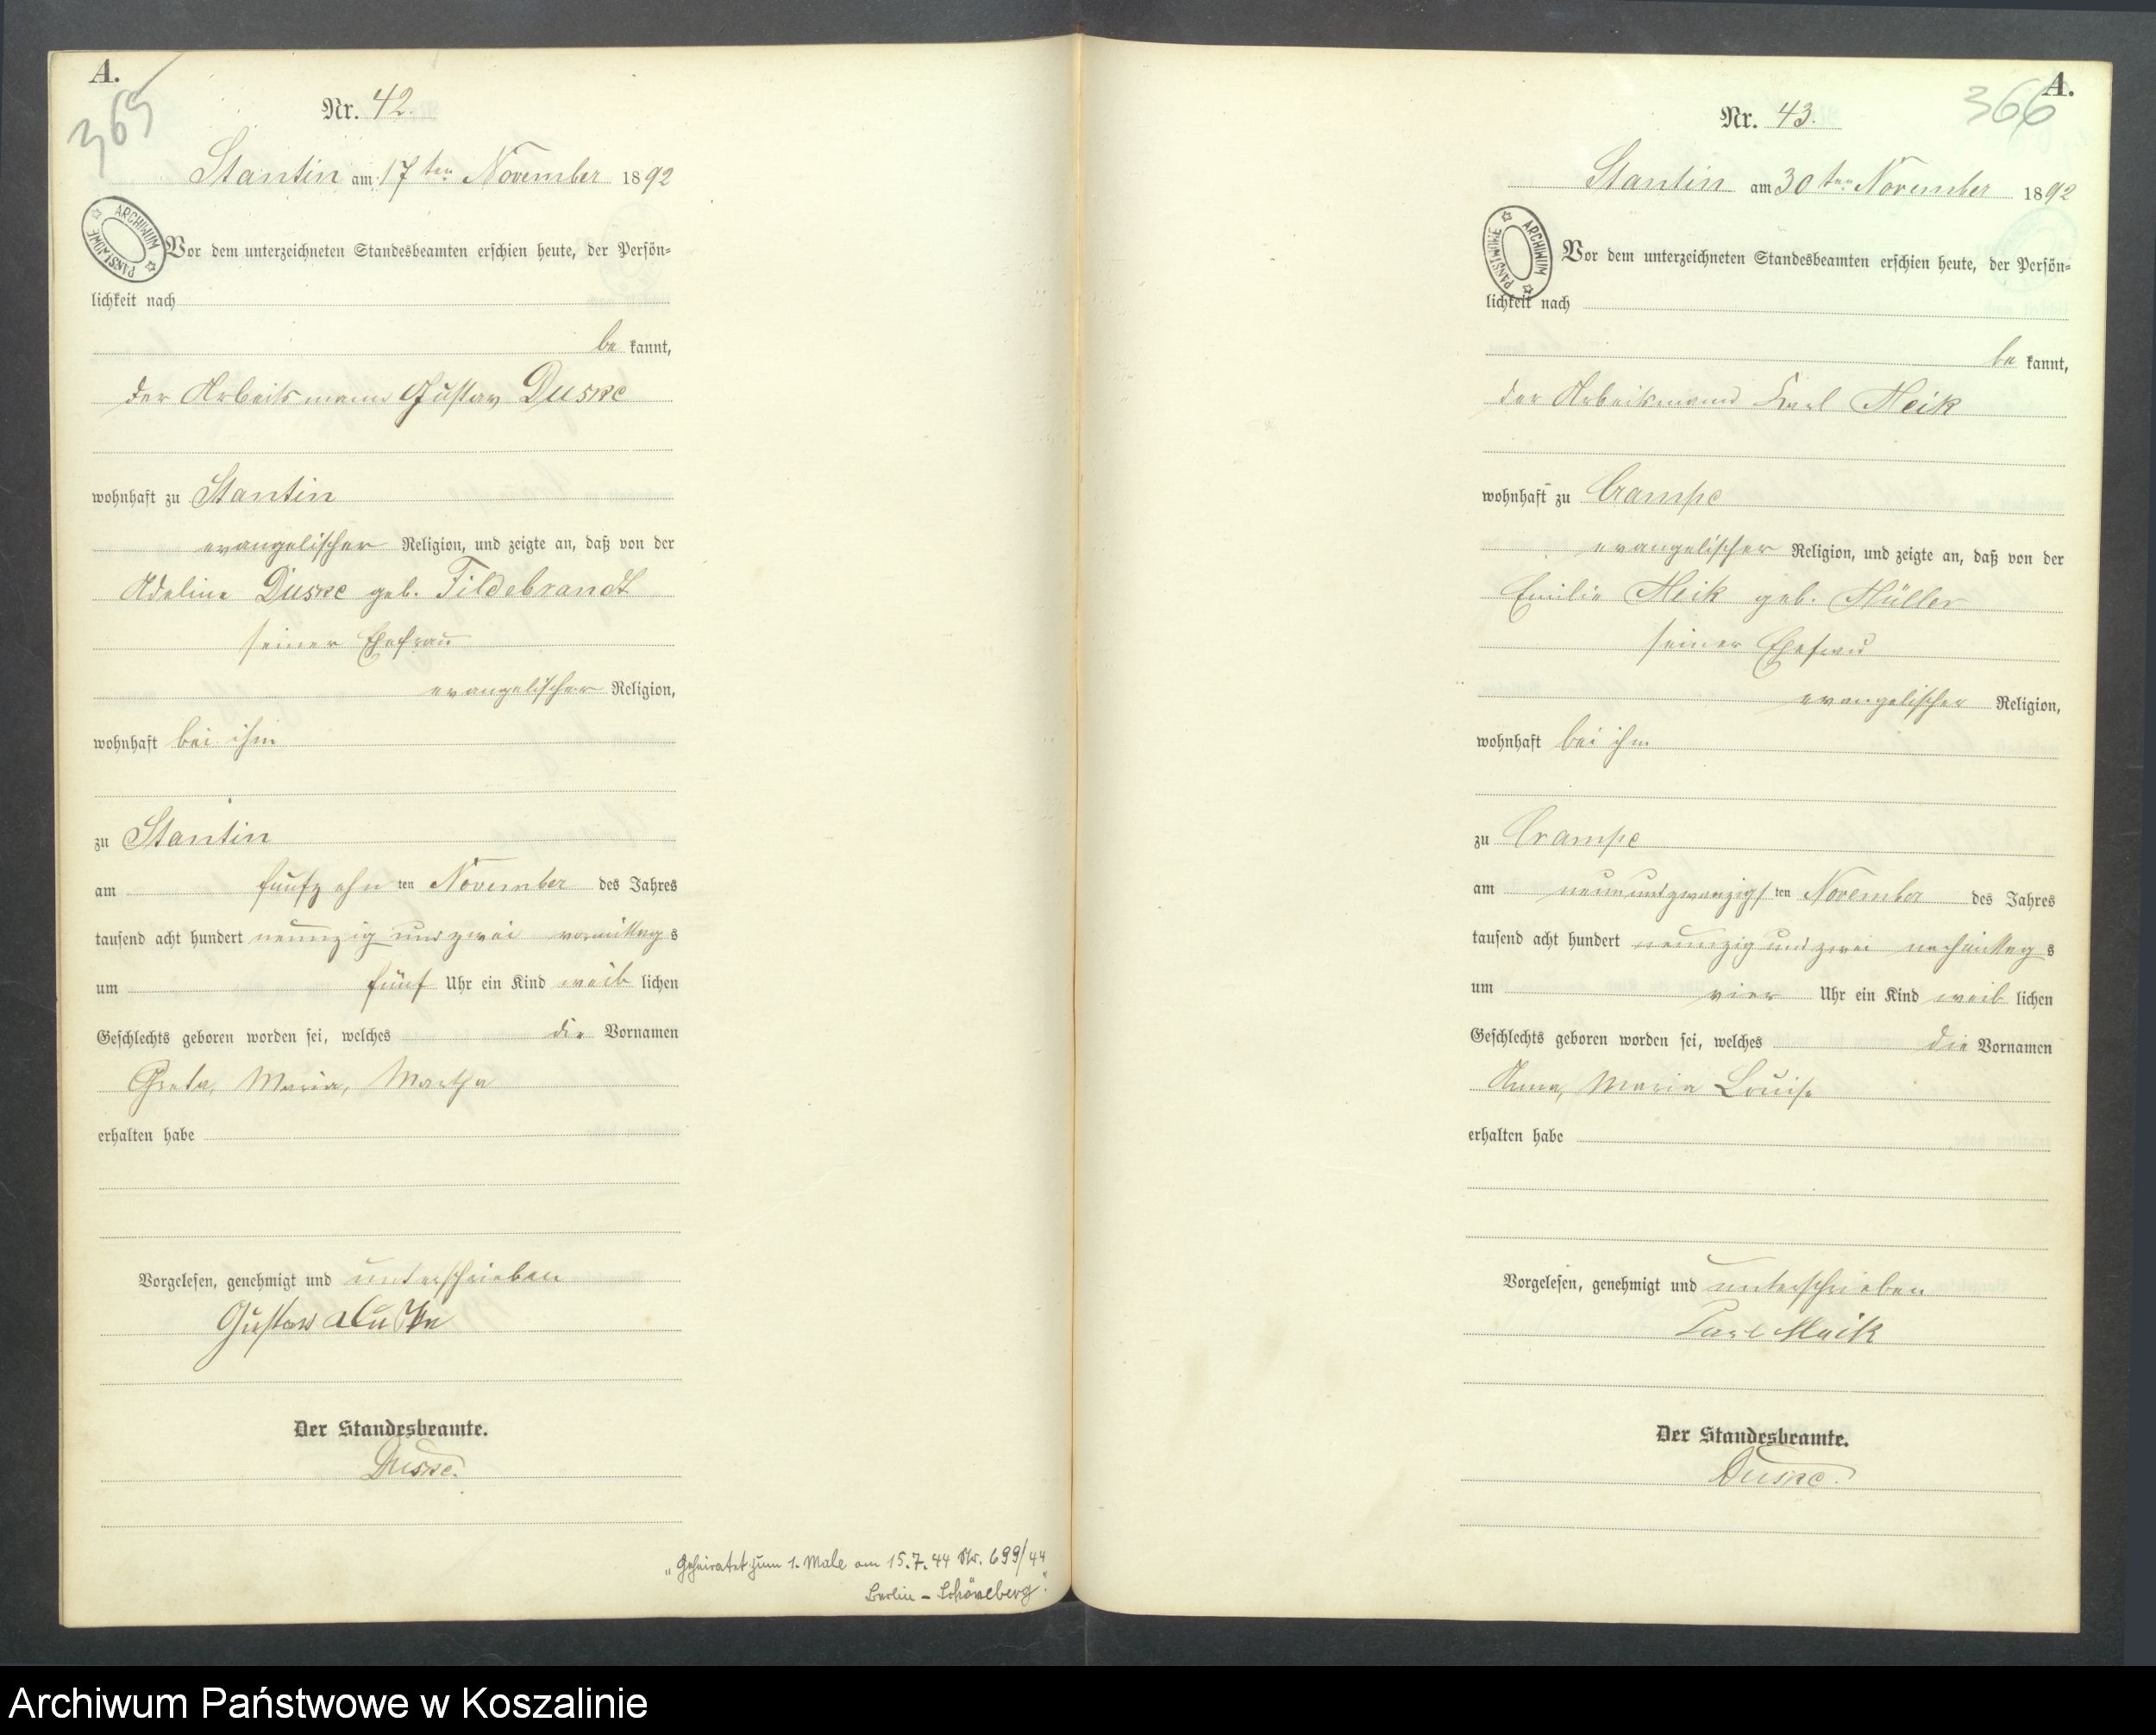 A.
365
Nr. 42.
Stantin am 17ten November 1892
ARCHIWUM PAŃSTWOWE
Vor dem unterzeichneten Standesbeamten erschien heute, der Persön=
lichkeit nach
be kannt,
der Arbeitsmann Gustav Duske
wohnhaft zu Stantin
evangelischer Religion, und zeigte an, daß von der
Adeline Duske geb. Fildebrandt
seiner Ehefrau
evangelischer Religion,
wohnhaft bei ihm
zu Stantin
am fünfzehnten November des Jahres
tausend acht hundert neunzig und zwei vormittags
um fünf Uhr ein Kind weiblichen
Geschlechts geboren worden sei, welches die Vornamen
Greta, Maria, Martha
erhalten habe
Vorgelesen, genehmigt und unterschrieben
Gustav Duske
Der Standesbeamte.
Duske.
„Geheiratet zum 1. Male am 15.7.44 Nr. 699/44
Berlin - Schöneberg".
A.
366
Nr. 43.
Stantin am 30ten November 1892
ARCHIWUM PAŃSTWOWE
Vor dem unterzeichneten Standesbeamten erschien heute, der Persön=
lichkeit nach
be kannt,
der Arbeitsmann Karl Heik
wohnhaft zu Crampe
evangelischer Religion, und zeigte an, daß von der
Emilie Heik geb. Müller
seiner Ehefrau
evangelischer Religion,
wohnhaft bei ihm
zu Crampe
am neunundzwanzigsten November des Jahres
tausend acht hundert neunzig und zwei nachmittags
um vier Uhr ein Kind weiblichen
Geschlechts geboren worden sei, welches die Vornamen
Anna, Maria Louise
erhalten habe
Vorgelesen, genehmigt und unterschrieben
Karl Heik
Der Standesbeamte.
Duske.
Archiwum Państwowe w Koszalinie